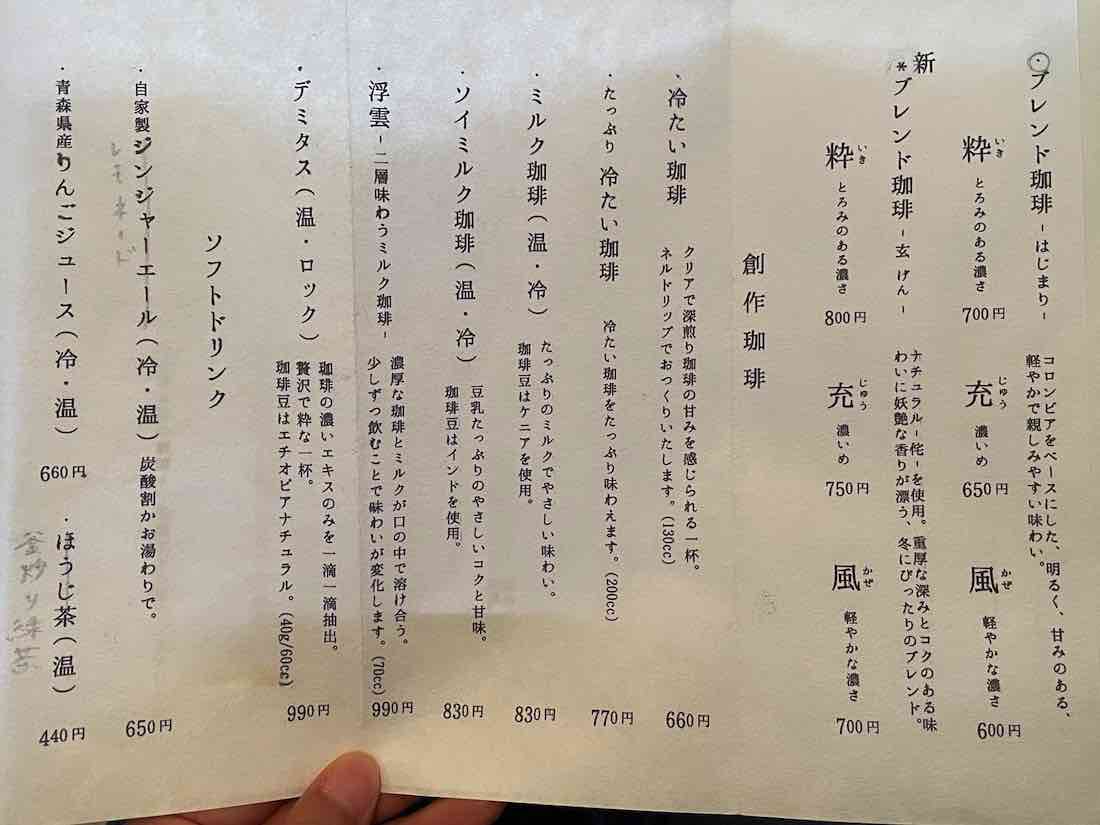 ・ブレンド珈琲 -はじまり-
コロンビアをベースにした、明るく、甘みのある、
軽やかで親しみやすい味わい。
粋 いき とろみのある濃さ 700円
充 じゅう 濃いめ 650円
風 かぜ 軽やかな濃さ 600円
新
*ブレンド珈琲 -玄 げん-
ナチュラル-侘-を使用。重厚な深みとコクのある味
わいに妖艶な香りが漂う、冬にぴったりのブレンド。
粋 いき とろみのある濃さ 800円
充 じゅう 濃いめ 750円
風 かぜ 軽やかな濃さ 700円
創作珈琲
・冷たい珈琲
クリアで深煎り珈琲の甘みを感じられる一杯。
ネルドリップでおつくりいたします。(130cc)
660円
・たっぷり 冷たい珈琲
冷たい珈琲をたっぷり味わえます。(200cc)
770円
・ミルク珈琲(温・冷)
たっぷりのミルクでやさしい味わい。
珈琲豆はケニアを使用。
830円
・ソイミルク珈琲(温・冷)
豆乳たっぷりのやさしいコクと甘味。
珈琲豆はインドを使用。
830円
・浮雲 -二層味わうミルク珈琲-
濃厚な珈琲とミルクが口の中で溶け合う。
少しずつ飲むことで味わいが変化します。(70cc)
990円
・デミタス(温・ロック)
珈琲の濃いエキスのみを一滴一滴抽出。
贅沢で粋な一杯。
珈琲豆はエチオピアナチュラル。(40g/60cc)
990円
ソフトドリンク
・自家製ジンジャーエール(冷・温) 炭酸割かお湯わりで。
650円
レモネード
・青森県産りんごジュース(冷・温) 660円
・ほうじ茶(温) 440円
釜炒り緑茶